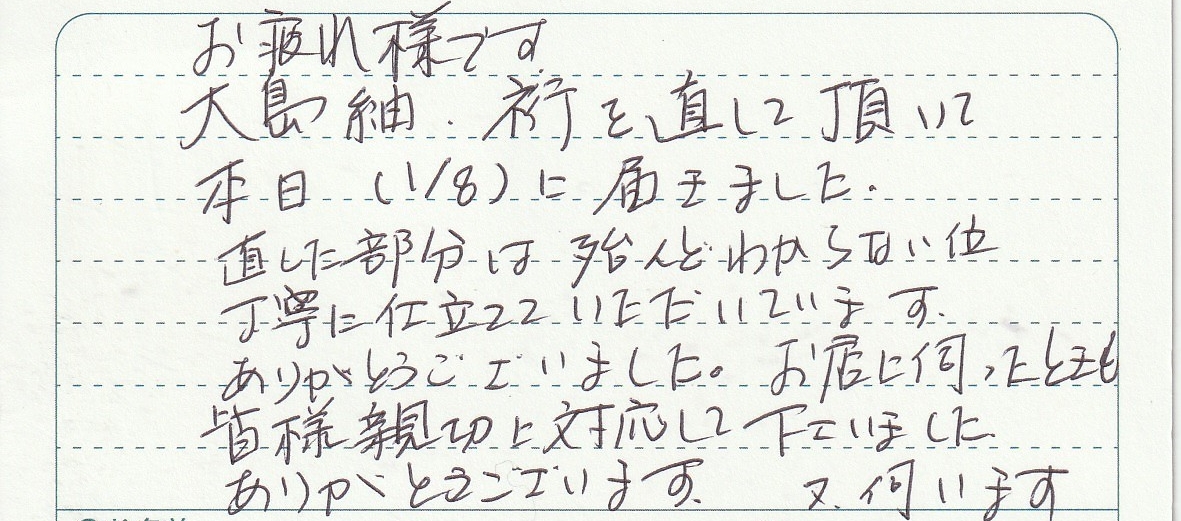 お疲れ様です
大島紬．裄を直して頂いて
本日（1/8）に届きました．
直した部分は殆んどわからない位
丁寧に仕立てて いただいています．
ありがとうございました。 お店に伺ったときも
皆様親切に対応して下さいました
ありがとうございます． 又．伺います